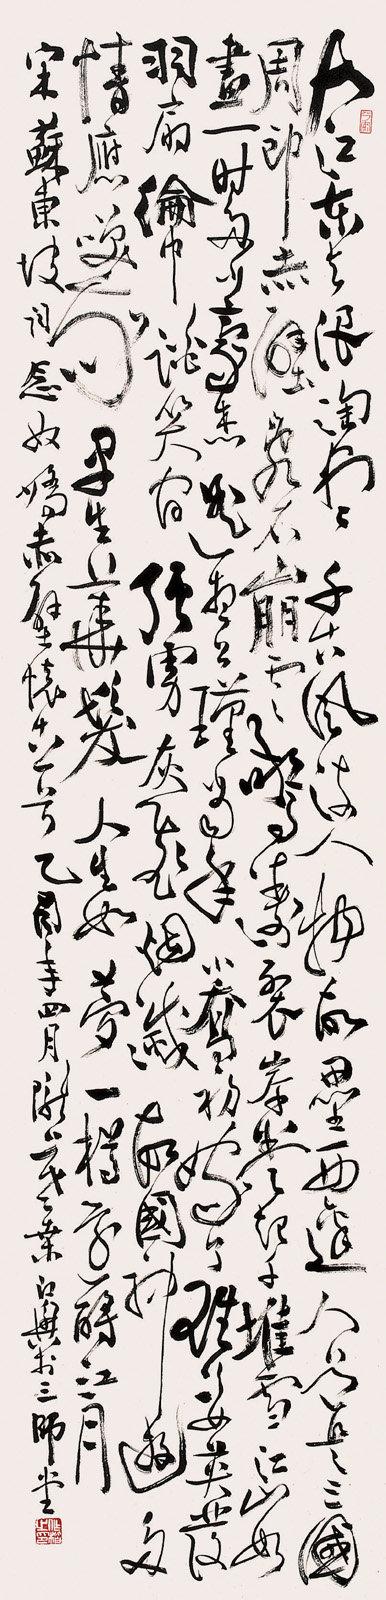 大江东去浪淘尽千古风流人物故垒西边人道是三國
周郎赤壁乱石崩雲驚涛裂岸卷起千堆雪江山如
畫一时多少豪杰遥想公瑾当年小喬初嫁了雄姿英发
羽扇綸巾談笑间强虏灰飞烟滅故國神遊多
情應笑我早生華髮人生如夢一樽还酹江月
宋蘇東坡词念奴嬌赤壁懷古一首乙酉年四月 三师堂